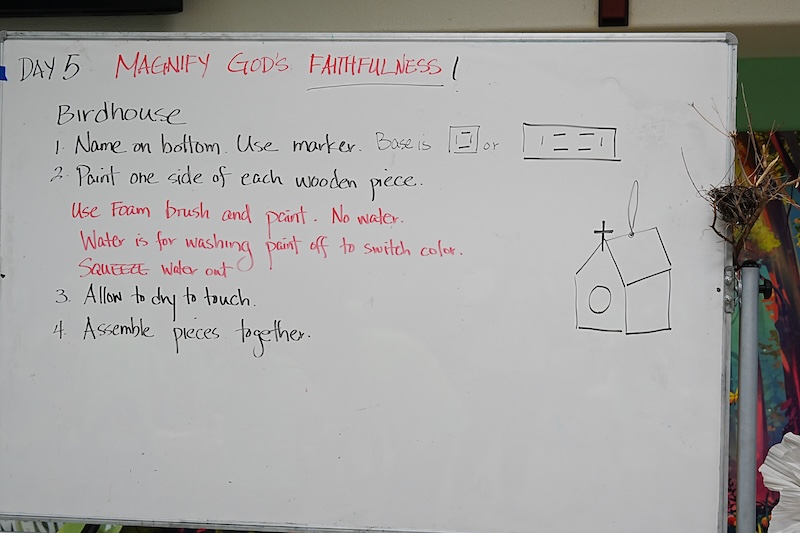 DAY 5 MAGNIFY GOD'S FAITHFULNESS!
Birdhouse
1. Name on bottom. Use marker. Base is or
2. Paint one side of each wooden piece.
Use Foam brush and paint. No water.
Water is for washing paint off to switch color.
SQUEEZE water out
3. Allow to dry to touch.
4. Assemble pieces together.